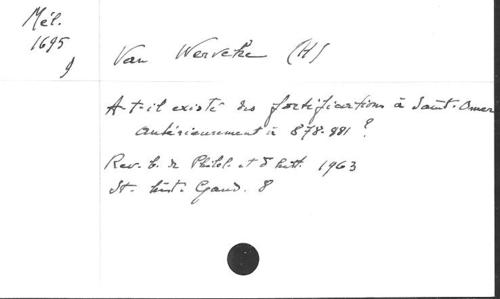 Mél.
1695
9
Van Werveke (H)
A-t-il existé des fortifications à Saint-Omer
antérieurement à 878-881 ?
Rev. b. de Philol. et d'hist. 1963
St. hist. Gand. 8